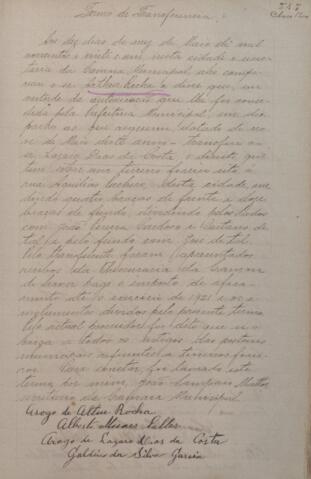 Termo de Transferencia
Aos dez dias do mez de Maio de mil
novecentos e vinte e um nesta cidade e secre-
taria da Camara Municipal, ahi compare-
ceu o sr. Arthur Rocha e disse que, em
virtude da autorisação que lhe foi conce-
dida pela Prefeitura Municipal, em des-
pacho ao seu requerim. datado de no-
ve de Maio deste anno, transfere ao
sr. Lazaro Dias da Costa o direito que
tem sobre um terreno foreiro sito á
rua desta cidade, me-
dindo quatro braças de frente e doze
braças de fundo, dividindo pelos lados
com João Pereira Cardoso e Caetano de
tal e pelo fundo com José de tal.
Pelo transferente foram apresentados
recibos da Thesouraria da Camara
de haver pago o imposto de afora-
mento do exercicio de 1921 e os e-
molumentos devidos pelo presente termo.
Pelo actual possuidor foi dito que se o-
briga a todos os onus das posturas
municipaes referentes a terrenos forei-
ros. Para constar, foi lavrado este
termo por mim, João Mattos
secretario da Camara Municipal.
Arogo de Altur Rocha
Alberto Moraes Salles
Arogo de Lazaro Dias da Costa
Galdino da Silva Garcia